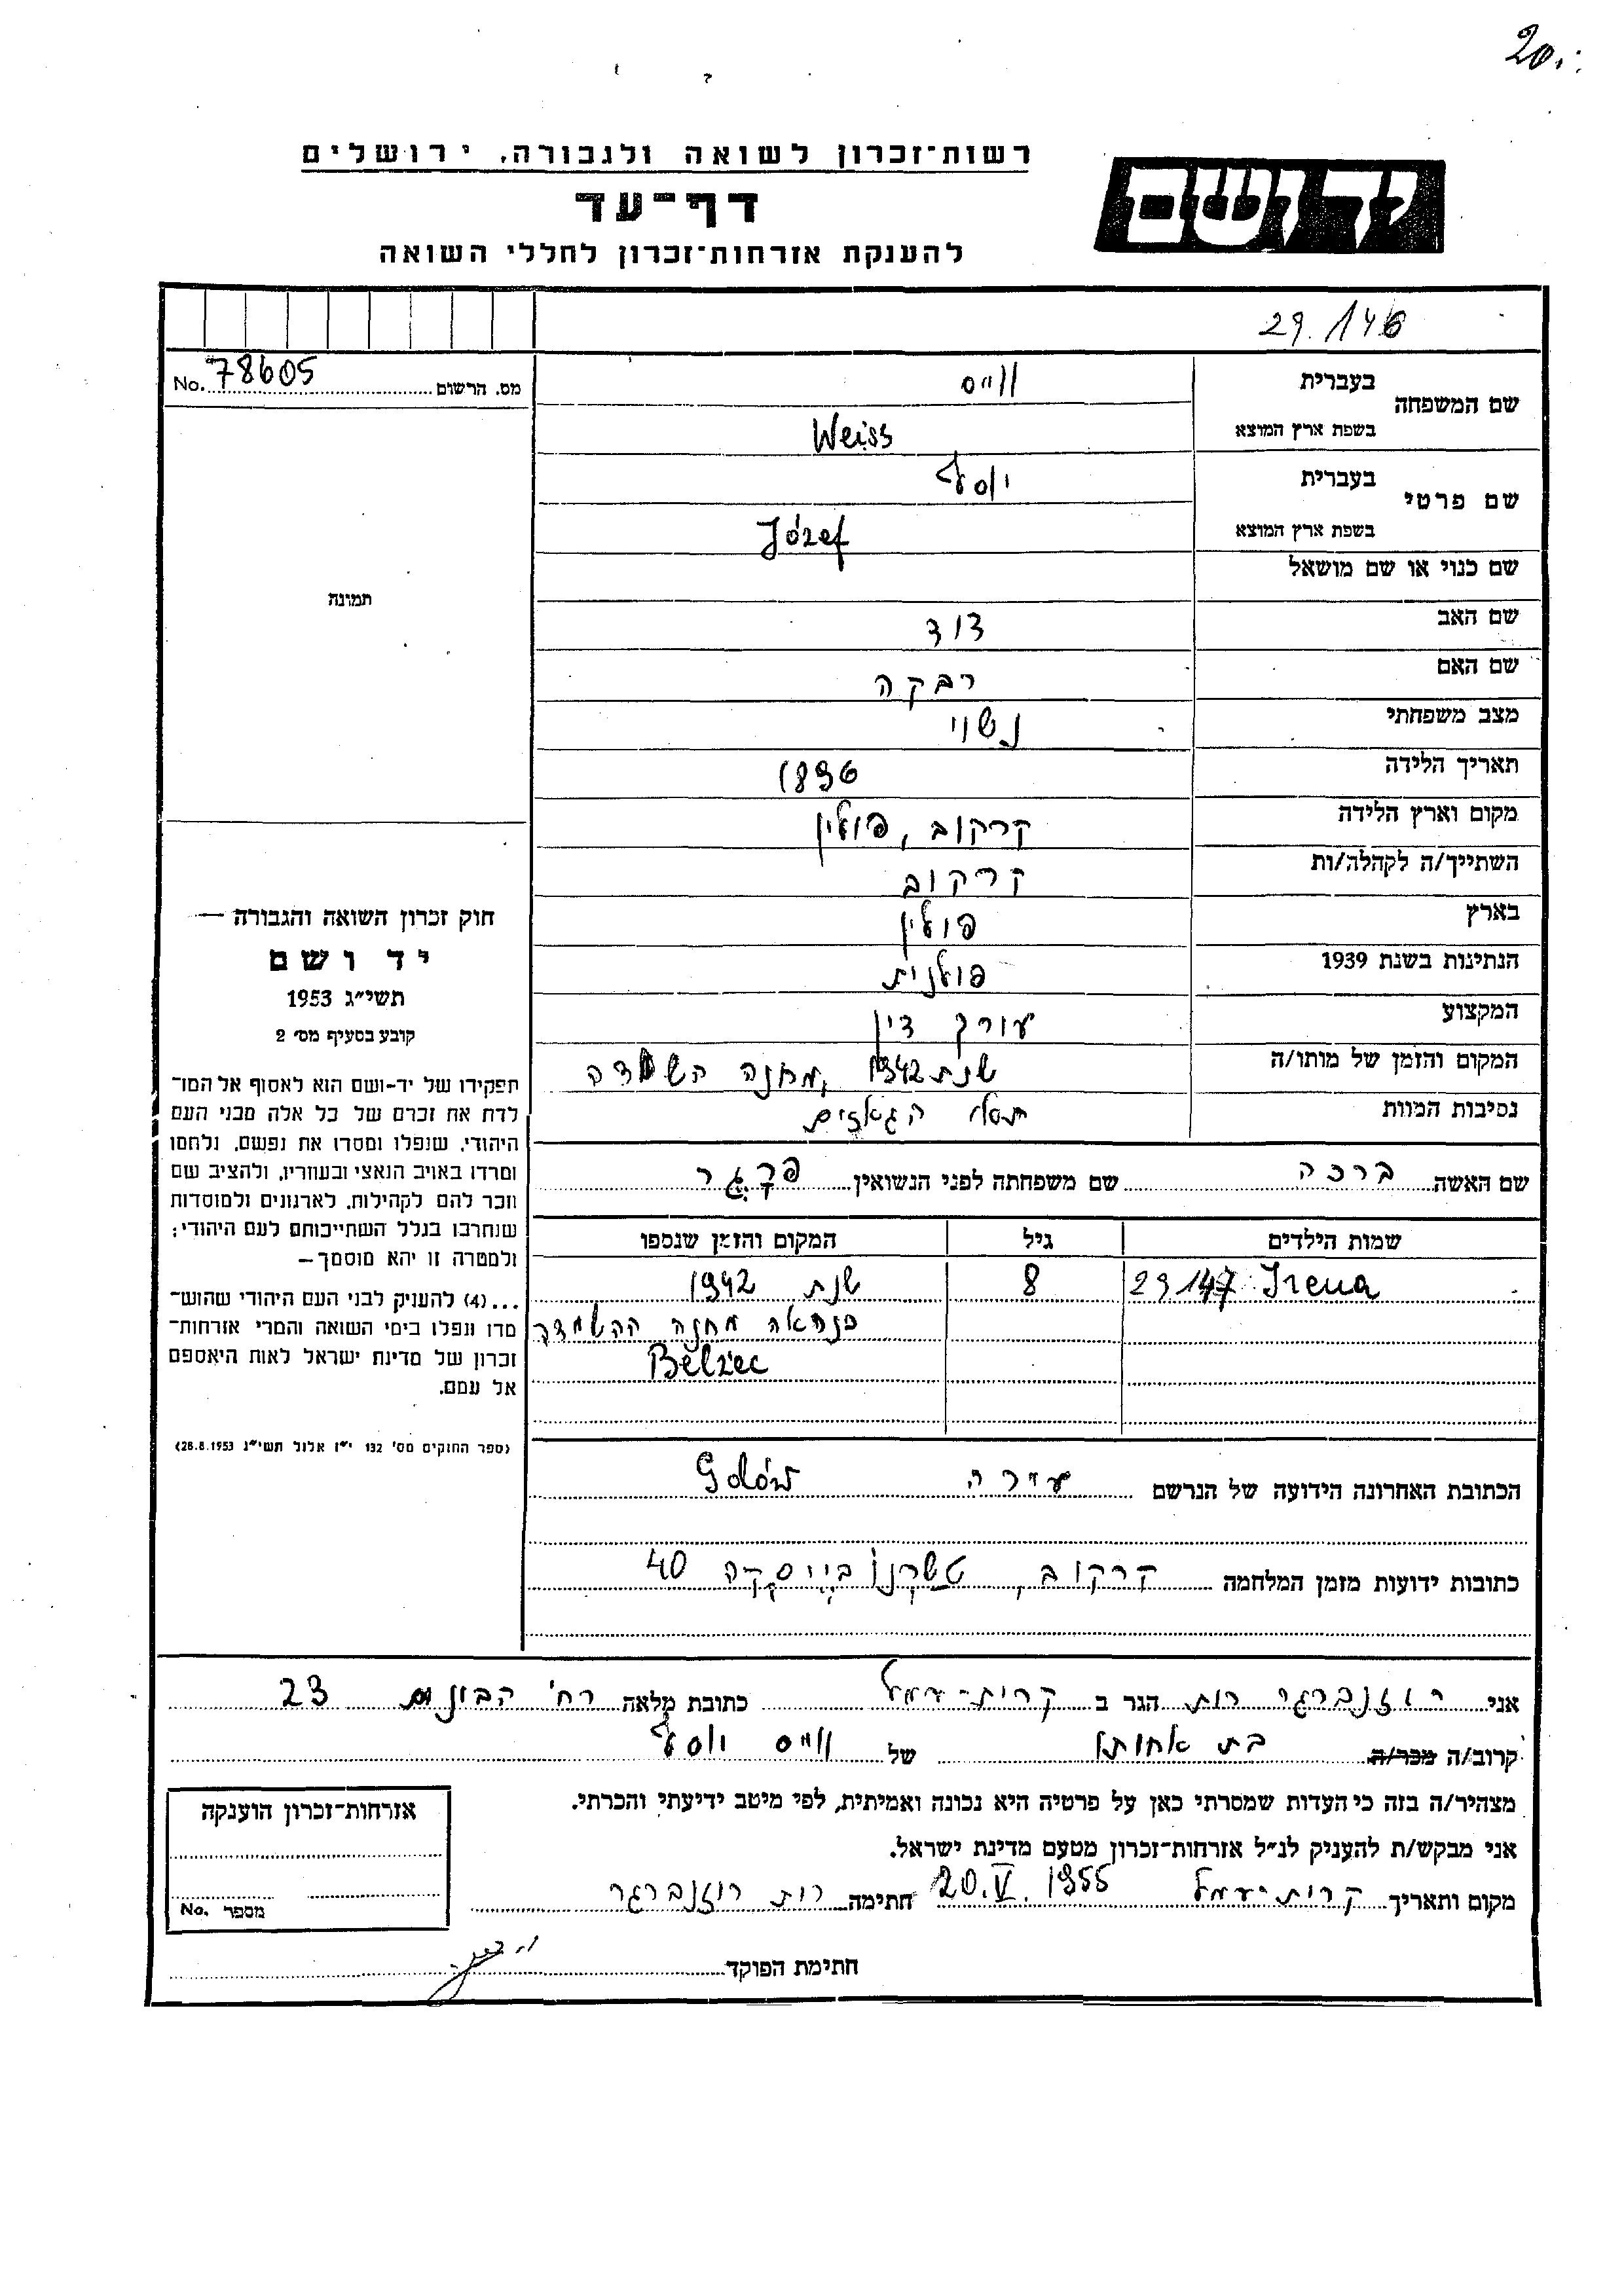 20.
רשות־זכרון לשואה ולגבורה, ירושלים
יד ושם
דף־עד
להענקת אזרחות־זכרון לחללי השואה
29.146
מס. הרשום 78605 No.
שם המשפחה
בעברית ווייס
בשפת ארץ המוצא Weiss
שם פרטי
בעברית יוסף
בשפת ארץ המוצא Józef
שם כנוי או שם מושאל
שם האב דוד
שם האם רבקה
מצב משפחתי נשוי
תאריך הלידה 1896
מקום וארץ הלידה קרקוב, פולין
השתייך/ה לקהלה/ות קרקוב
בארץ פולין
הנתינות בשנת 1939 פולנית
המקצוע עורך דין
המקום והזמן של מותו/ה שנת 1942, מחנה השמדה
נסיבות המוות תאי הגאזים
שם האשה ברכה שם משפחתה לפני הנשואין
שמות הילדים גיל המקום והזמן שנספו
29147 Irena 8 שנת 1942
כנראה מחנה ההשמדה
Bełżec
הכתובת האחרונה הידועה של הנרשם עירה
כתובות ידועות מזמן המלחמה קרקוב, 40
תמונה
חוק זכרון השואה והגבורה —
יד ושם
תשי״ג 1953
קובע בסעיף מס׳ 2
תפקידו של יד-ושם הוא לאסוף אל המו־
לדת את זכרם של כל אלה מבני העם
היהודי, שנפלו ומסרו את נפשם, נלחמו
ומרדו באויב הנאצי ובעוזריו, ולהציב שם
וזכר להם לקהילות, לארגונים ולמוסדות
שנחרבו בגלל השתייכותם לעם היהודי;
ולמטרה זו יהא מוסמך —
...(4) להעניק לבני העם היהודי שהוש־
מדו ונפלו בימי השואה והמרי אזרחות־
זכרון של מדינת ישראל לאות היאספם
אל עמם.
(ספר החוקים מס׳ 132 י״ז אלול תשי״ג 28.8.1953)
אני רוזנברגר רות הגר ב קרית-עמל כתובת מלאה רח׳ הבונים 23
קרוב/ה מכר/ה בת אחותו של ווייס יוסף
מצהיר/ה בזה כי העדות שמסרתי כאן על פרטיה היא נכונה ואמיתית, לפי מיטב ידיעתי והכרתי.
אני מבקש/ת להעניק לנ״ל אזרחות־זכרון מטעם מדינת ישראל.
מקום ותאריך קרית-עמל 20.V.1955 חתימה רות רוזנברגר
חתימת הפוקד
אזרחות־זכרון הוענקה
מספר No.